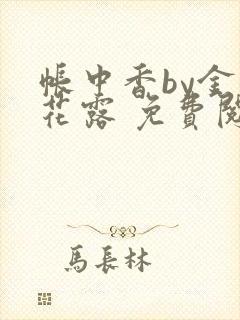 帳中香by金
花露 免費閱
馬長林